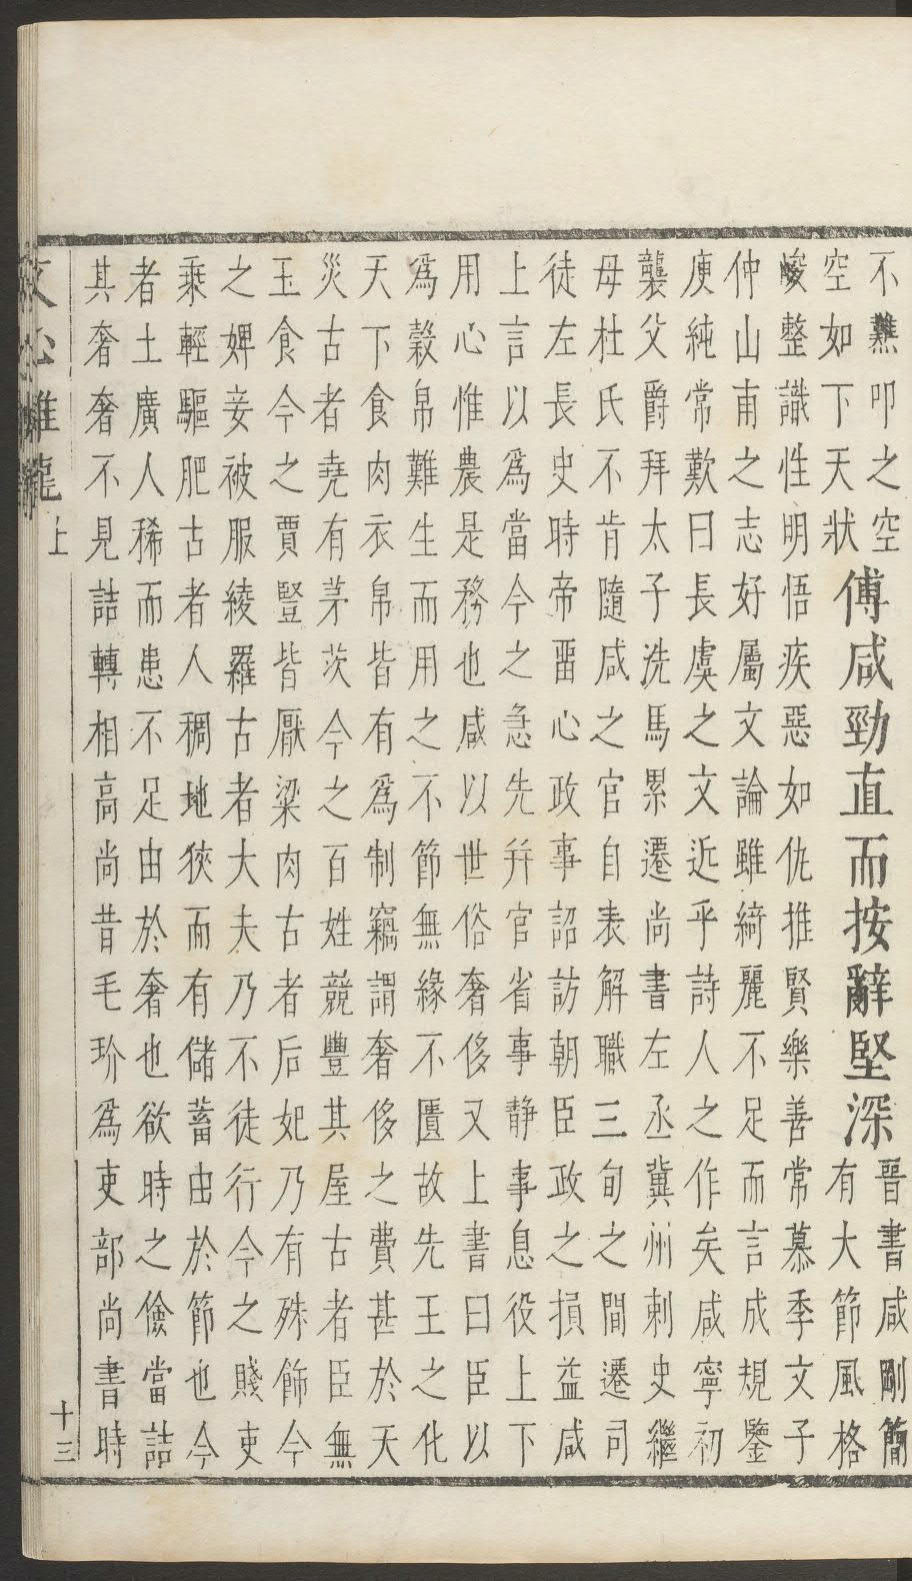 不叩之空
空如下天狀
傅咸勁直而按辭堅深
晉書咸剛簡
有大節風格
峻整識性明悟疾惡如仇推賢樂善常慕季文子
仲山甫之志好屬文論雖綺麗不足而言成規鑒
庾純常歎曰長虞之文近乎詩人之作矣咸寧初
襲父爵拜太子洗馬累遷尚書左丞冀州刺史繼
母杜氏不肯隨咸之官自表解職三旬之間遷司
徒左長史時帝畱心政事詔訪朝臣政之損益咸
上言以爲當今之急先幷官省事静事息役上下
用心惟農是務也咸以世俗奢侈又上書曰臣以
爲穀帛難生而用之不節無緣不匱故先王之化
天下食肉衣帛皆有爲制竊謂奢侈之費甚於天
災古者堯有茅茨今之百姓競豐其屋古者臣無
玉食今之賈豎皆厭粱肉古者后妃乃有殊飾今
之婢妾被服綾羅古者大夫乃不徒行今之賤吏
乘輕驅肥古者人稠地狹而有儲蓄由於節也今
者土廣人稀而患不足由於奢也欲時之儉當詰
其奢奢不見詰轉相高尚昔毛玠爲吏部尚書時
文心雕龍 上 十三